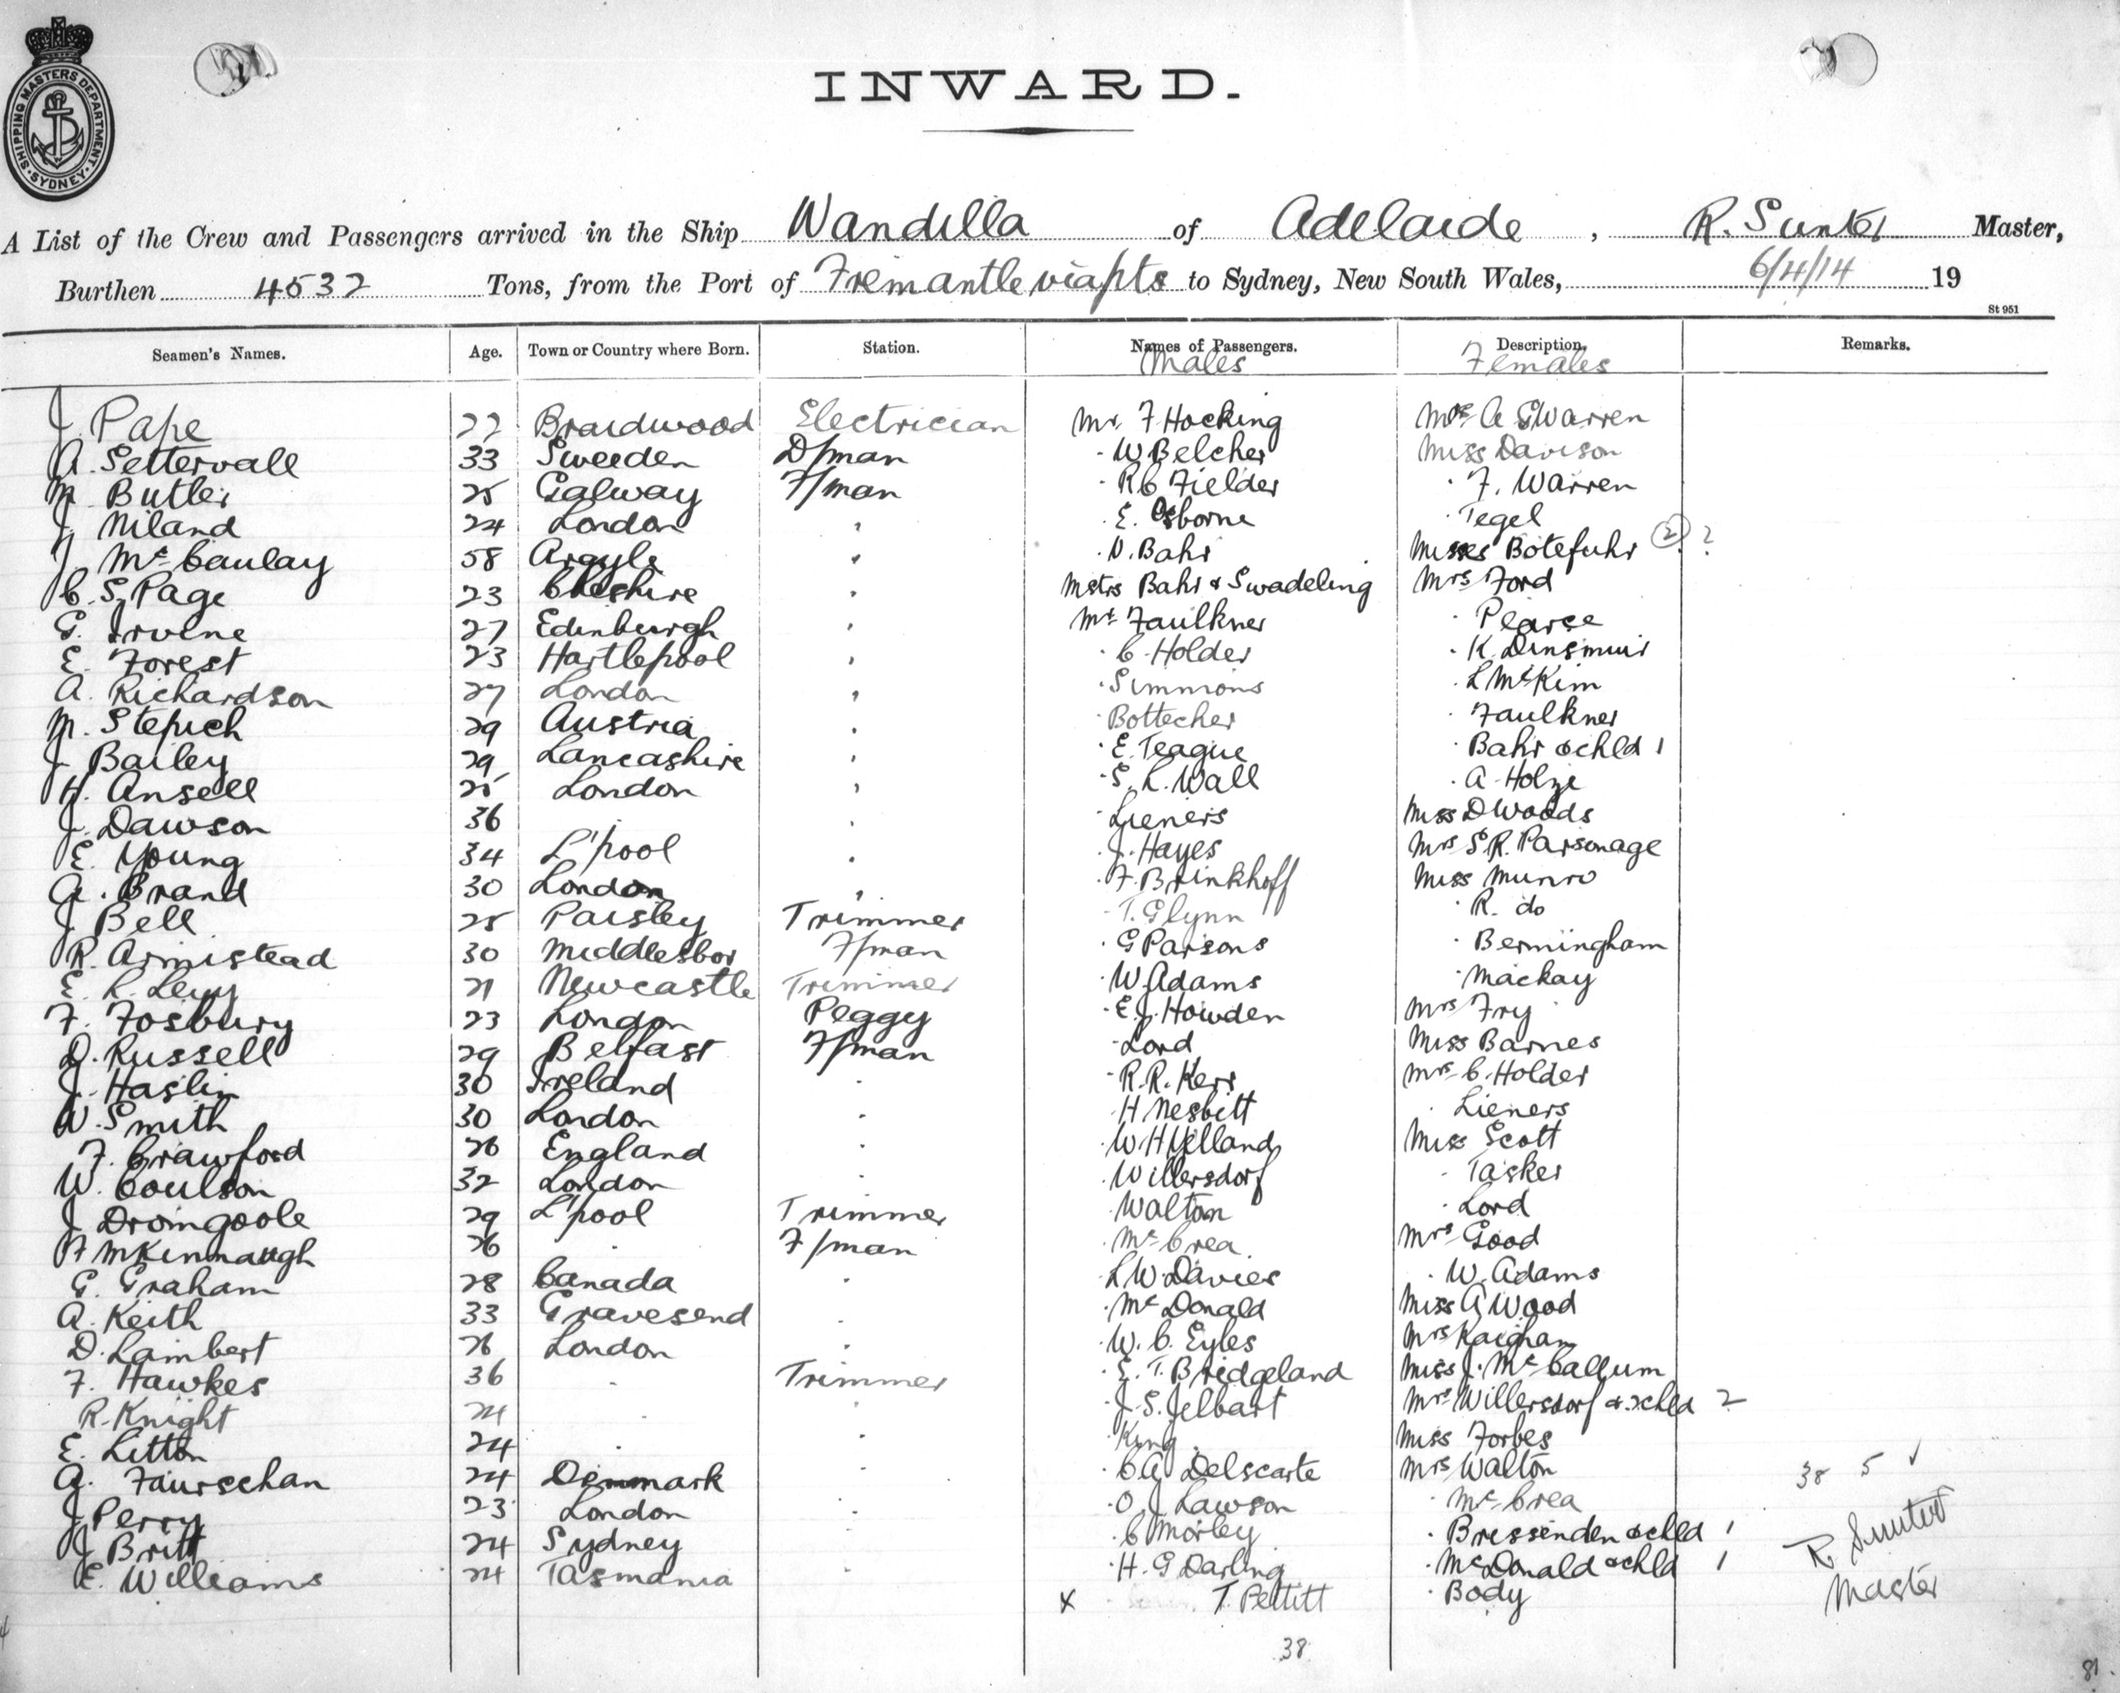 INWARD.
SHIPPING MASTERS DEPARTMENT. SYDNEY.
A List of the Crew and Passengers arrived in the Ship Wandilla of Adelaide, R. Sunter Master,
Burthen 4532 Tons, from the Port of Fremantle via pts to Sydney, New South Wales, 6/4/14 19
St 951
Seamen's Names. Age. Town or Country where Born. Station. Names of Passengers. Description. Remarks.
Males Females
J. Pape 22 Braidwood Electrician Mr. F Hocking Mrs A G Warren
A. Settervall 33 Sweeden D/man " W Belcher Miss Davison
M. Butler 25 Galway F/man " R C Fielder " F. Warren
J. Niland 24 London " " E. Osborne " Tegel
J. McCaulay 58 Argyle " " D. Bahr Misses Botefuhr (2) ?
C. S. Page 23 Cheshire " Mstrs Bahr & Swadeling Mrs Ford
G. Irvine 27 Edinburgh " Mr Faulkner " Pearse
E. Forest 23 Hartlepool " " C. Holder " K. Dinsmuir
A. Richardson 27 London " " Simmons " L McKim
M. Stepich 29 Austria " " Bottecher " Faulkner
J Bailey 29 Lancashire " " E. Teague " Bahr & chld 1
H. Ansell 25 London " " S. R. Wall " A Holze
J. Dawson 36 " " Lieners Miss D Woods
E. Young 34 L'pool " " J. Hayes Mrs S R. Parsonage
A. Brand 30 London " " F. Brinkhoff Miss Munro
J Bell 25 Paisley Trimmer " T. Glynn " R. do
R. Armistead 30 Middlesbor F/man " G Parsons " Bermingham
E. R. Levy 21 Newcastle Trimmer " W. Adams " Mackay
F. Fosbury 23 London Peggy " E. J. Howden Mrs Fry
D. Russell 29 Belfast F/man " Lord Miss Barnes
J. Haslin 30 Ireland " " R. R. Kerr Mrs C. Holder
W. Smith 30 London " " H Nesbitt " Lieners
F. Crawford 26 England " " W. H Yelland Miss Scott
W. Coulson 32 London " " Willersdorf " Tasker
J Dromgoole 29 L'pool Trimmer " Walton " Lord
26 " F/man " McCrea Mrs Good
G. Graham 28 Canada " " L W. Davies " W. Adams
A. Keith 33 Gravesend " " McDonald Miss A Wood
D. Lambert 26 London " " W. C. Eyles Mrs Kaigham
F. Hawkes 36 " Trimmer " E. T. Bridgeland Miss J. McCallum
R. Knight 24 " " " J. S. Jelbart Mrs Willersdorf & 2chld 2
E. Litton 24 " " " King Miss Forbes
A. Faurschan 24 Denmark " " C A Delscarte Mrs Walton
38 5 ✓
J Perry 23 London " " O. J Lawson " McCrea
J Britt 24 Sydney " " C Morley " Bressenden & chld 1
E. Williams 24 Tasmania " " H. G Darling " McDonald & chld 1
R Sunter
x T. Pettitt " Body
Master
38
81